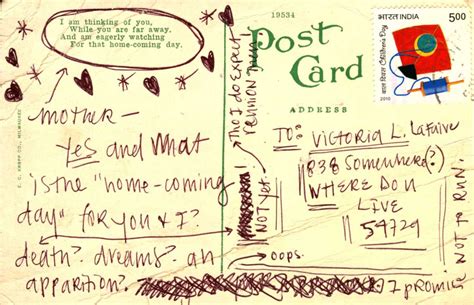 I am thinking of you,
While you are far away.
And am eagerly watching
For that home-coming day.
19534
Post
Card
ADDRESS
भारत INDIA
5.00
Children's Day
2010
mother-
Yes and what
is the "home-coming
day" for you & I?
death? dreams? an
apparition?
Tho I do expect
reunion
NOT yet.
oops.
TO: VICTORIA L. LaFAIVE
838 Somewhere(?)
WHERE DO U
LIVE
54729
NOT TO RUN.
I promise